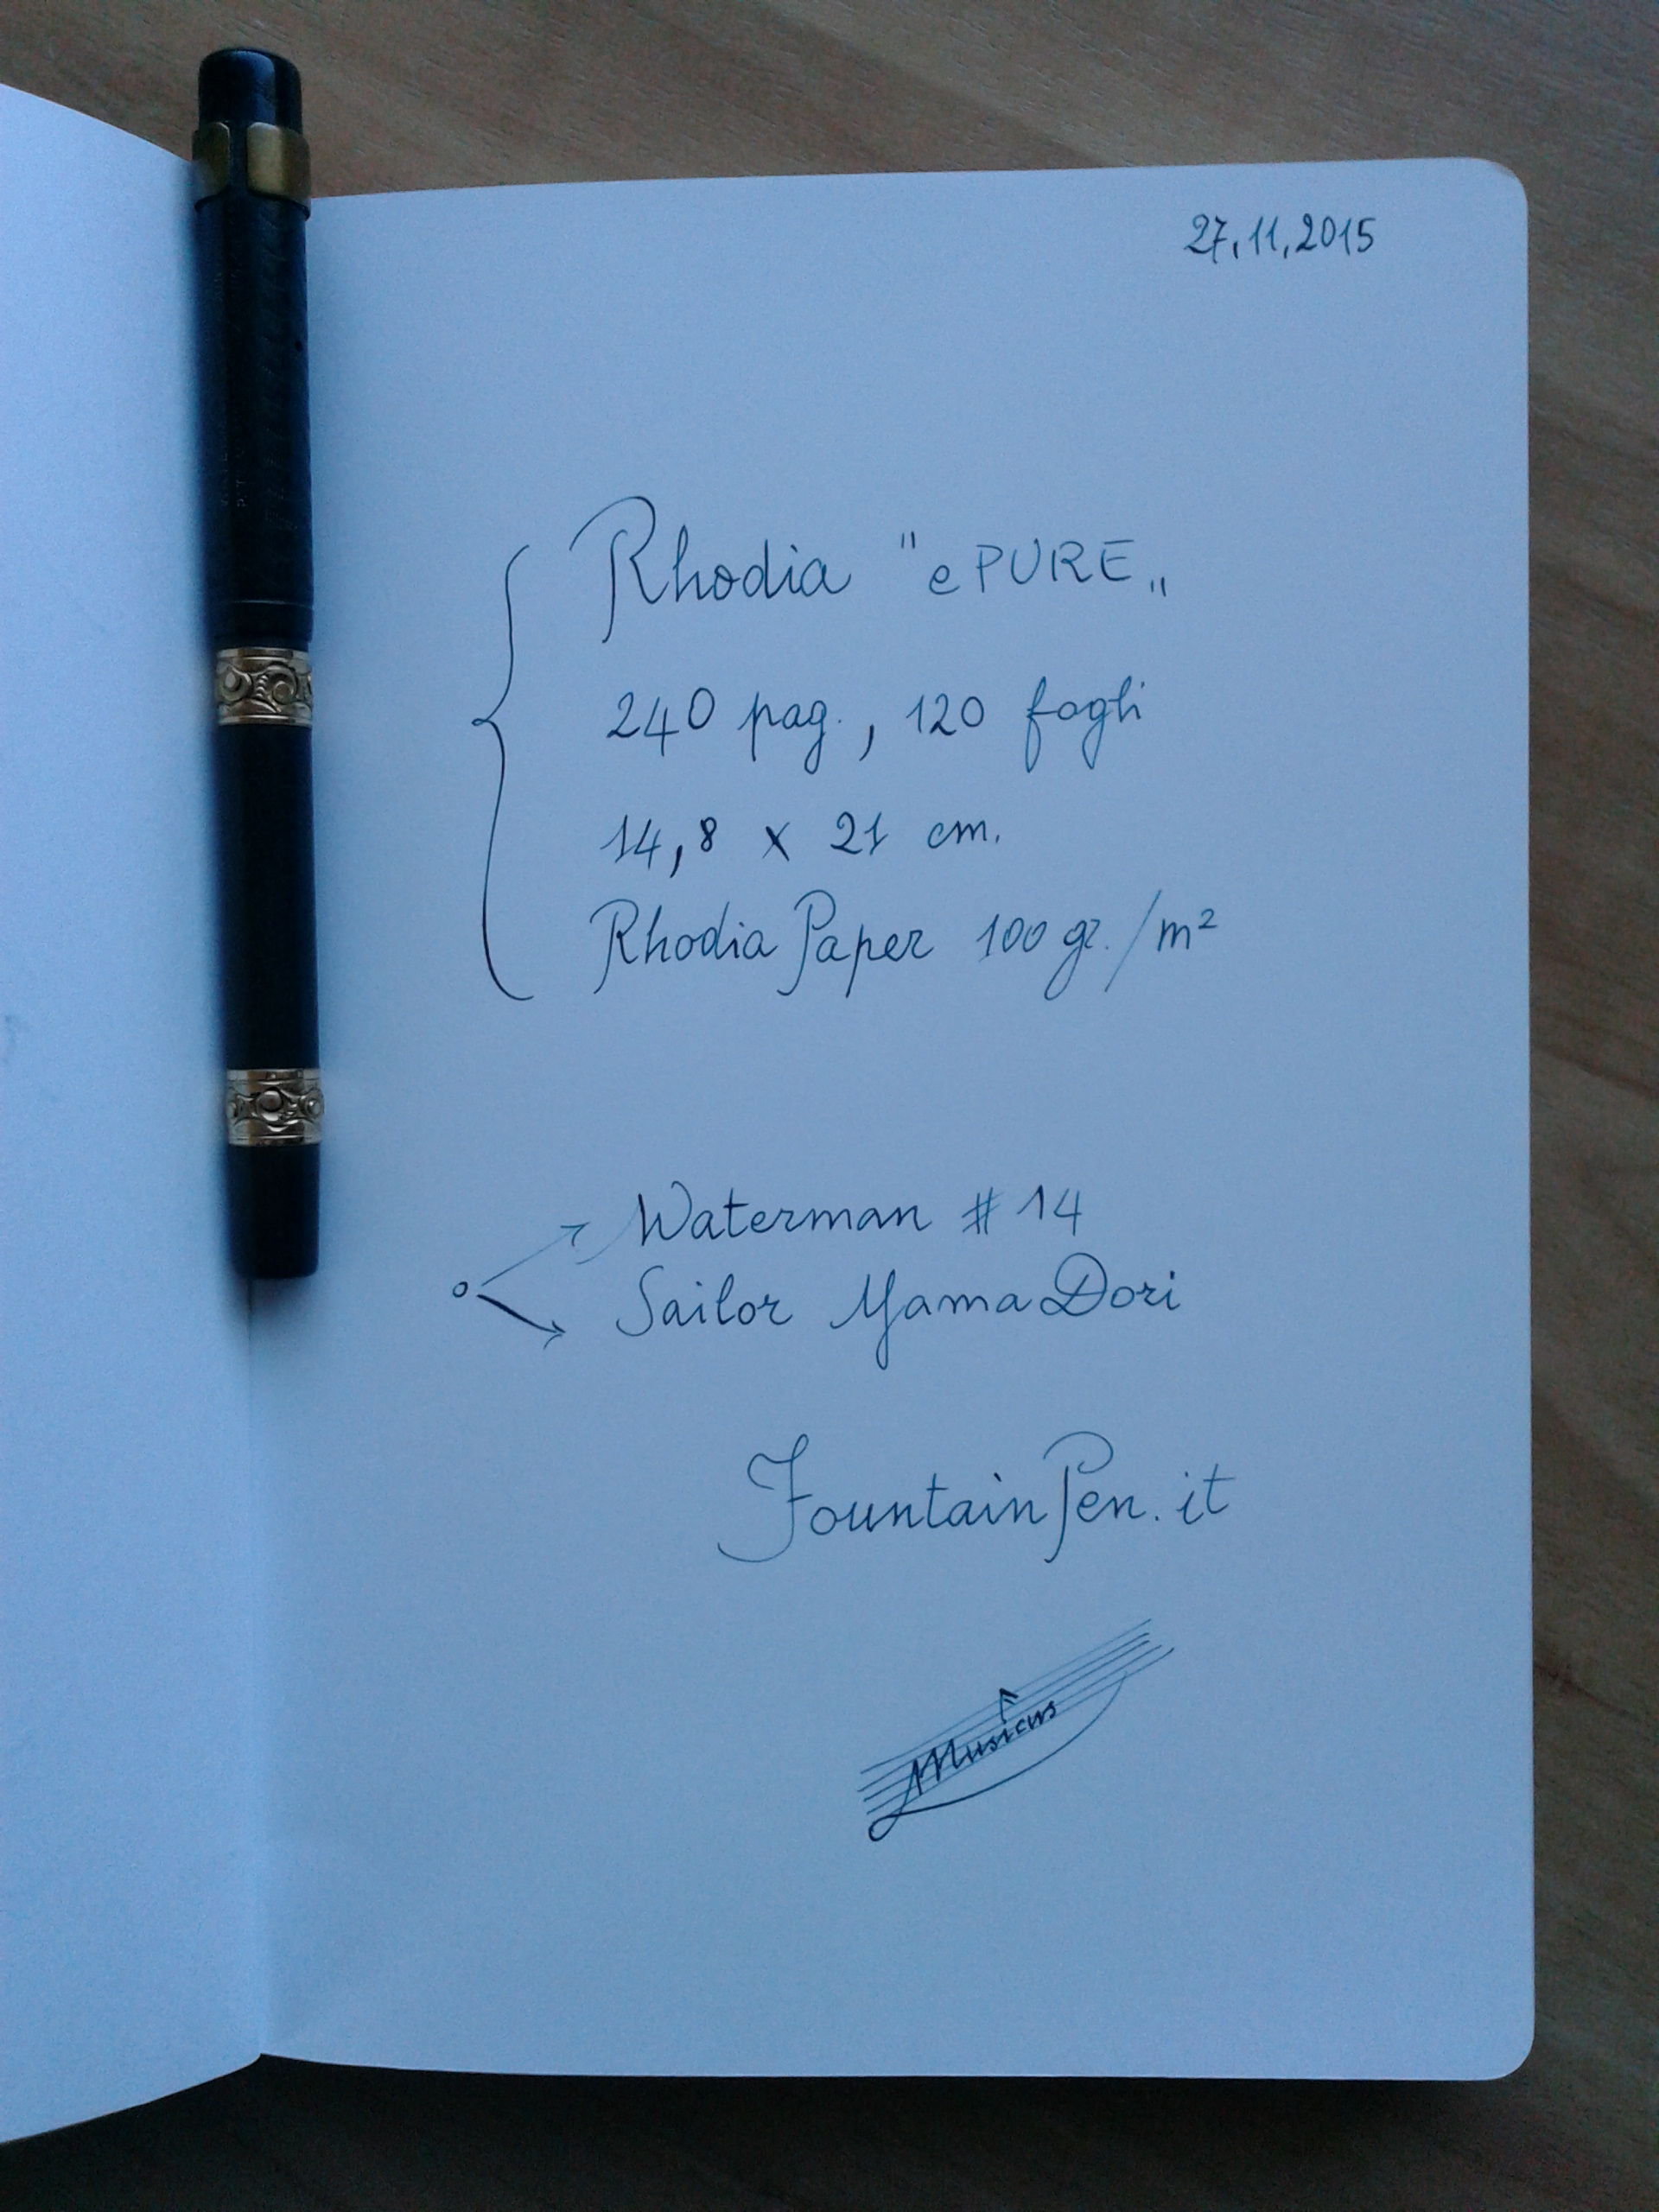 27.11.2015
Rhodia "ePURE„
240 pag., 120 fogli
14,8 x 21 cm.
Rhodia Paper 100 gr./m²
Waterman # 14
Sailor YamaDori
FountainPen.it
Musicus